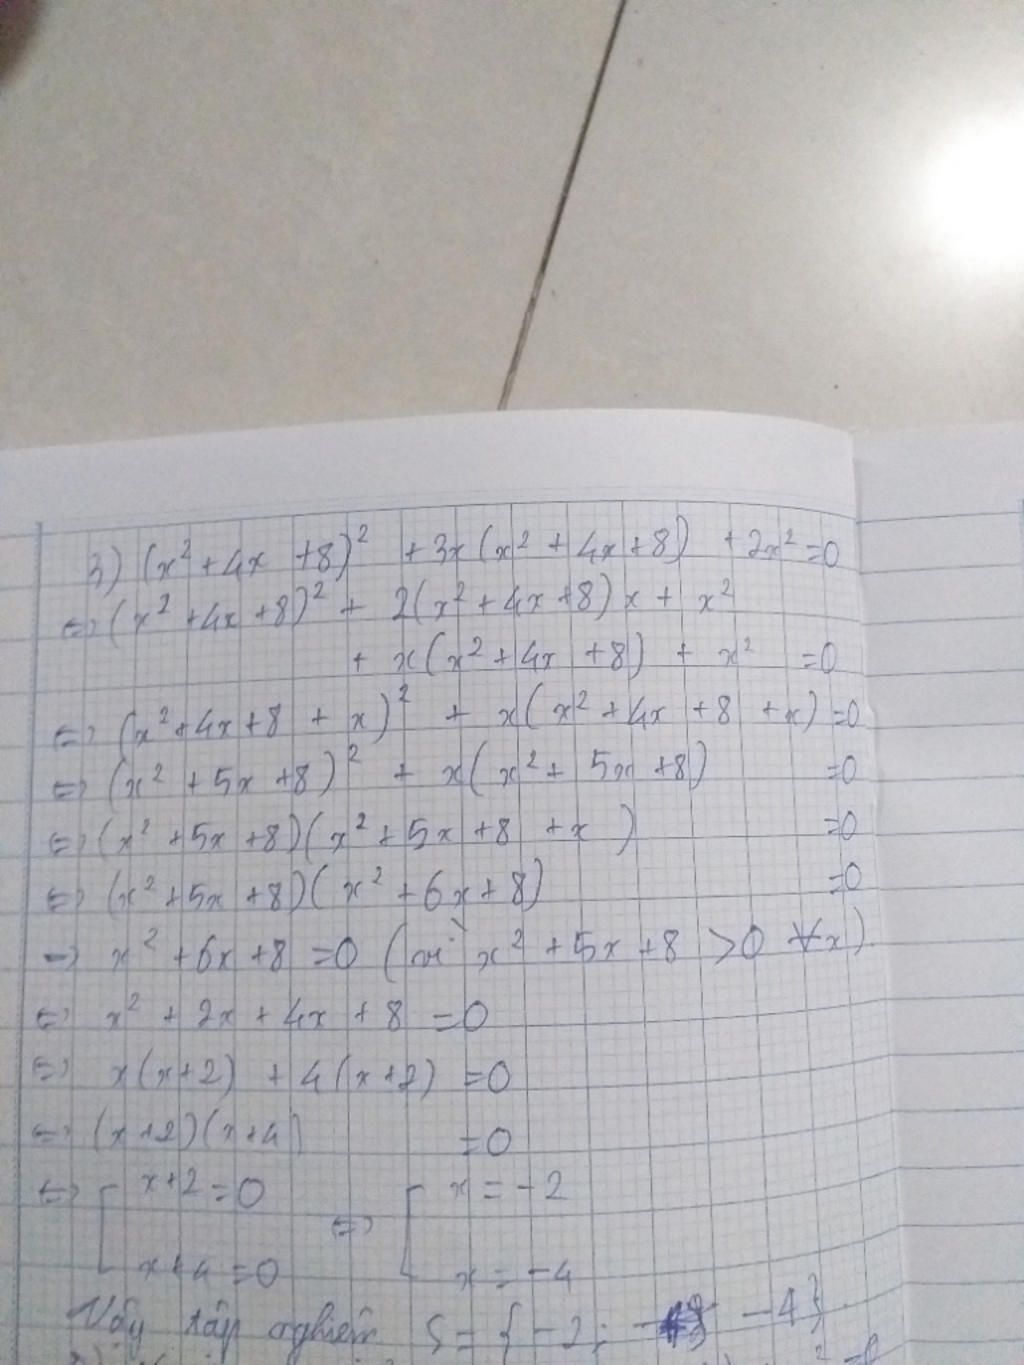 3) (x² + 4x + 8)² + 3x(x² + 4x + 8) + 2x² = 0
<=> (x² + 4x + 8)² + 2(x² + 4x + 8)x + x²
+ x(x² + 4x + 8) + x² = 0
<=> (x² + 4x + 8 + x)² + x(x² + 4x + 8 + x) = 0
<=> (x² + 5x + 8)² + x(x² + 5x + 8) = 0
<=> (x² + 5x + 8)(x² + 5x + 8 + x) = 0
<=> (x² + 5x + 8)(x² + 6x + 8) = 0
-> x² + 6x + 8 = 0 (vì x² + 5x + 8 > 0 ∀x)
<=> x² + 2x + 4x + 8 = 0
<=> x(x+2) + 4(x+2) = 0
<=> (x+2)(x+4) = 0
<=> [ x+2 = 0 <=> [ x = -2
x+4 = 0 x = -4
Vậy tập nghiệm S = { -2; -4}